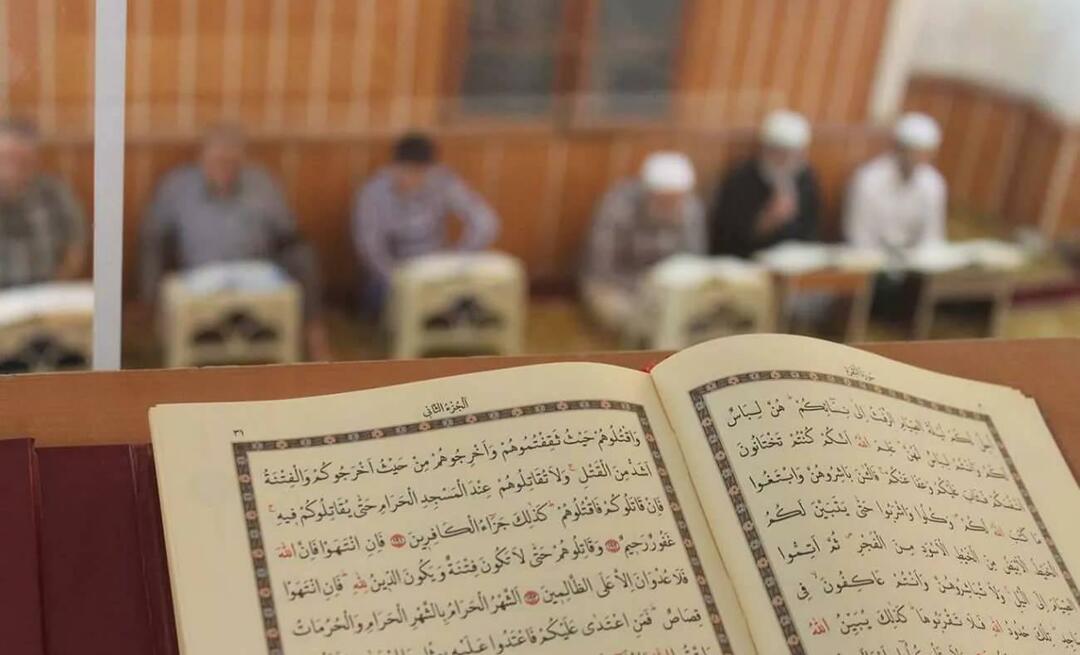 سورة البقرة
اُحِلَّ لَكُمْ لَيْلَةَ الصِّيَامِ الرَّفَثُ اِلٰى نِسَآئِكُمْ هُنَّ لِبَاسٌ
لَكُمْ وَاَنْتُمْ لِبَاسٌ لَهُنَّ عَلِمَ اللّٰهُ اَنَّكُمْ كُنْتُمْ تَخْتَانُونَ
اَنْفُسَكُمْ فَتَابَ عَلَيْكُمْ وَعَفَا عَنْكُمْ فَالْـٰٔنَ بَاشِرُوهُنَّ وَابْتَغُوا
مَا كَتَبَ اللّٰهُ لَكُمْ وَكُلُوا وَاشْرَبُوا حَتّٰى يَتَبَيَّنَ لَكُمُ
الْخَيْطُ الْاَبْيَضُ مِنَ الْخَيْطِ الْاَسْوَدِ مِنَ الْفَجْرِ ثُمَّ اَتِمُّوا
الصِّيَامَ اِلَى الَّيْلِ وَلَا تُبَاشِرُوهُنَّ وَاَنْتُمْ عَاكِفُونَ فِي
تِلْكَ حُدُودُ اللّٰهِ فَلَا تَقْرَبُوهَا كَذٰلِكَ يُبَيِّنُ اللّٰهُ
الجزء الثاني
وَاقْتُلُوهُمْ حَيْثُ ثَقِفْتُمُوهُمْ وَاَخْرِجُوهُمْ مِنْ حَيْثُ اَخْرَجُوكُمْ وَالْفِتْنَةُ
اَشَدُّ مِنَ الْقَتْلِ وَلَا تُقَاتِلُوهُمْ عِنْدَ الْمَسْجِدِ الْحَرَامِ حَتّٰى يُقَاتِلُوكُمْ فِيهِ
فَاِنْ قَاتَلُوكُمْ فَاقْتُلُوهُمْ كَذٰلِكَ جَزَآءُ الْكَافِرِينَ فَاِنِ انْتَهَوْا فَاِنَّ اللّٰهَ
غَفُورٌ رَحِيمٌ وَقَاتِلُوهُمْ حَتّٰى لَا تَكُونَ فِتْنَةٌ وَيَكُونَ الدِّينُ لِلّٰهِ فَاِنِ انْتَهَوْا
فَلَا عُدْوَانَ اِلَّا عَلَى الظَّالِمِينَ اَلشَّهْرُ الْحَرَامُ بِالشَّهْرِ الْحَرَامِ وَالْحُرُمَاتُ
قِصَاصٌ فَمَنِ اعْتَدٰى عَلَيْكُمْ فَاعْتَدُوا عَلَيْهِ بِمِثْلِ مَا